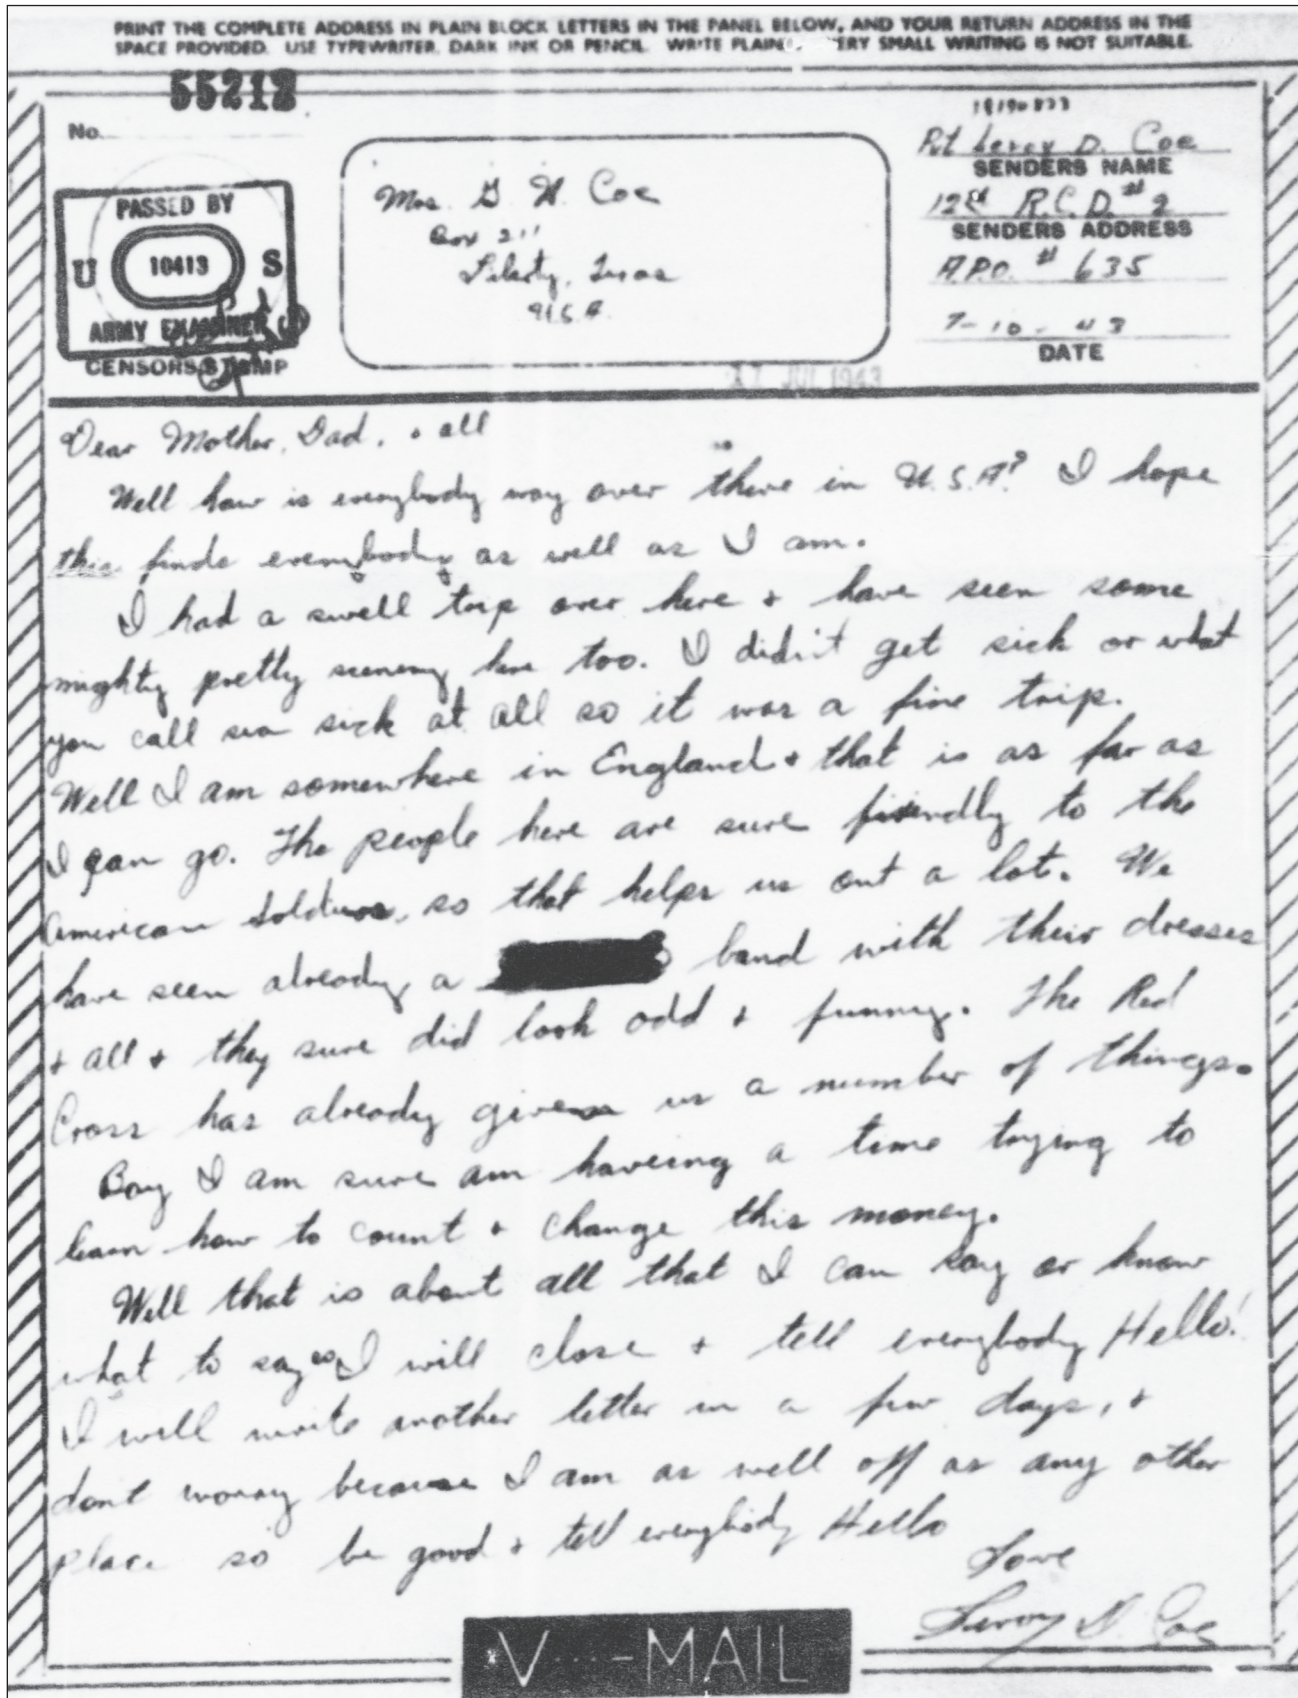 PRINT THE COMPLETE ADDRESS IN PLAIN BLOCK LETTERS IN THE PANEL BELOW, AND YOUR RETURN ADDRESS IN THE
SPACE PROVIDED. USE TYPEWRITER, DARK INK OR PENCIL. WRITE PLAIN ERY SMALL WRITING IS NOT SUITABLE.
55212
No.
PASSED BY
U 10413 S
ARMY EXAMINER
CENSORS STAMP
Mrs. G. W. Coe
Box 211
Liberty, Texas
U.S.A.
18190833
Pvt Leroy D. Coe
SENDERS NAME
12th R.C.D. # 2
SENDERS ADDRESS
A.P.O. # 635
7-10-43
DATE
17 JUL 1943
Dear Mother, Dad, + all
Well how is everybody way over there in U.S.A? I hope
this finds everybody as well as I am.
I had a swell trip over here + have seen some
mighty pretty scenery here too. I didn't get sick or what
you call sea sick at all so it was a fine trip.
Well I am somewhere in England + that is as far as
I can go. The people here are sure friendly to the
American soldiers, so that helps us out a lot. We
have seen already a band with their dresses
+ all + they sure did look odd + funny. The Red
Cross has already given us a number of things.
Boy I am sure am haveing a time trying to
learn how to count + change this money.
Well that is about all that I can say or know
what to say so I will close + tell everybody Hello!
I will write another letter in a few days, +
dont worry because I am as well off as any other
place so be good + tell everybody Hello
Love
Leroy D. Coe
V···-MAIL